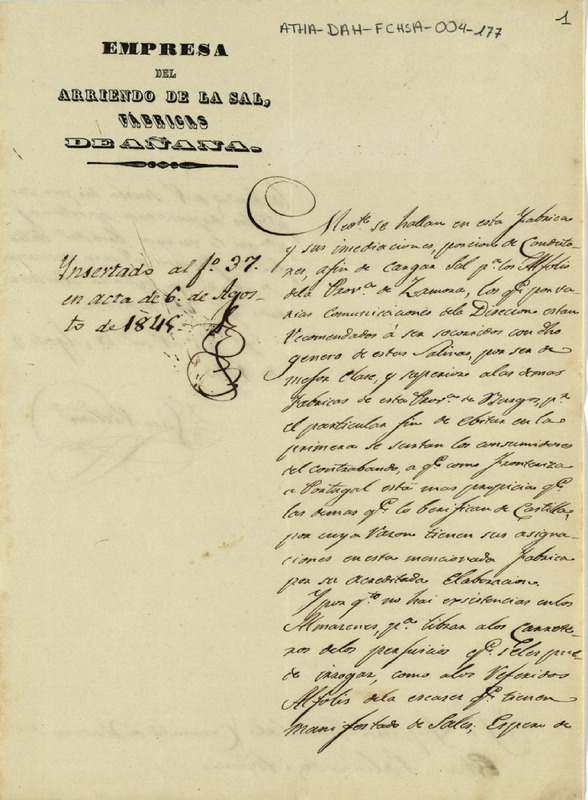 ATHA-DAH-FCHSA-004-177
1
EMPRESA
DEL
ARRIENDO DE LA SAL,
FÁBRICAS
DE AÑANA.
Insertado al fº. 37.
en acta de 6. de Agos-
to de 1845.
se hallan en esta Fabrica
y sus inmediaciones, porcion de Conducto-
res, afin de cargar Sal pª. los Alfolis
dela Provª. de Zamora, los qº. por va-
rias comunicaciones dela Direccion estan
Recomendados á ser socorridos con dho
genero de estas Salinas, por ser de
mejor clase, y superior alas demas
Fabricas de esta Provª. de Burgos, pª.
el particular fin de ebitar en la
primera se surtan los consumidores
del contrabando, a qº. como fronteriza
a Portugal está mas propicia qº.
las demas qº. lo berifican de Castilla,
por cuya Razon tienen sus asigna-
ciones en esta mencionada Fabrica
por su acreditada Elaboracion.
Y por qto no hai exsistencias en los
Almacenes, pª. librar alos Carrete-
ros delos perjuicios qº. seles pue-
de irrogar, como alos Referidos
Alfolis dela escasez qº. tienen
manifestado de Sales, Espero de